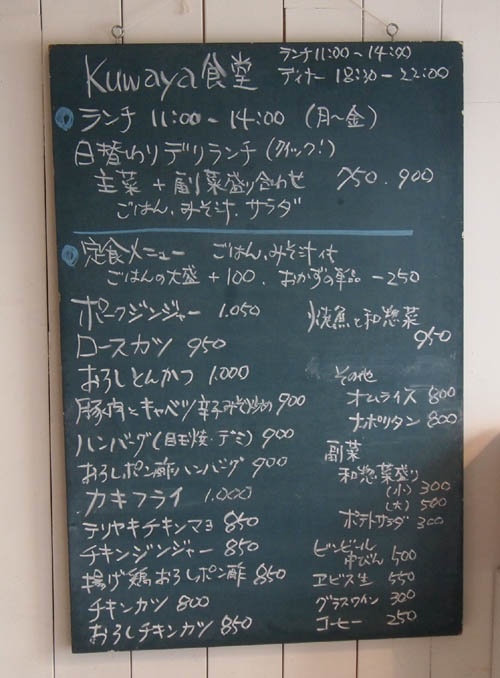 Kuwaya食堂
ランチ 11:00 - 14:00
ディナー 18:30 - 22:00
ランチ 11:00 - 14:00 (月〜金)
日替わりデリランチ (クイック!)
主菜 + 副菜盛り合わせ 750.900
ごはん、みそ汁、サラダ
定食メニュー ごはん、みそ汁付
ごはんの大盛 +100、おかずの単品 -250
ポークジンジャー 1.050
ロースカツ 950
おろしとんかつ 1.000
豚肉とキャベツ辛子みそ炒め 900
ハンバーグ (目玉焼・デミ) 900
おろしポン酢ハンバーグ 900
カキフライ 1.000
テリヤキチキンマヨ 850
チキンジンジャー 850
揚げ鶏おろしポン酢 850
チキンカツ 800
おろしチキンカツ 850
焼魚と和惣菜
950
その他
オムライス 800
ナポリタン 800
副菜
和惣菜盛り
(小) 300
(大) 500
ポテトサラダ 300
ビンビール
中びん 500
ヱビス生 550
グラスワイン 300
コーヒー 250